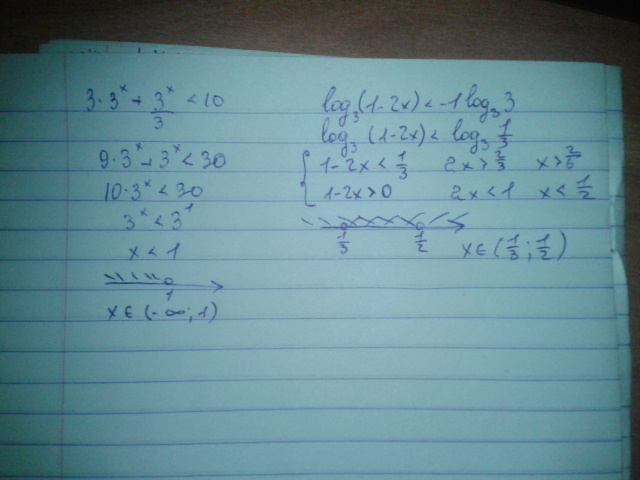 3·3^x + 3^x/3 < 10
9·3^x + 3^x < 30
10·3^x < 30
3^x < 3^1
x < 1
1
x ∈ (-∞; 1)
log_3 (1-2x) < -1 log_3 3
log_3 (1-2x) < log_3 1/3
{ 1-2x < 1/3 2x > 2/3 x > 2/6
1-2x > 0 2x < 1 x < 1/2
1/3 1/2
x ∈ (1/3; 1/2)